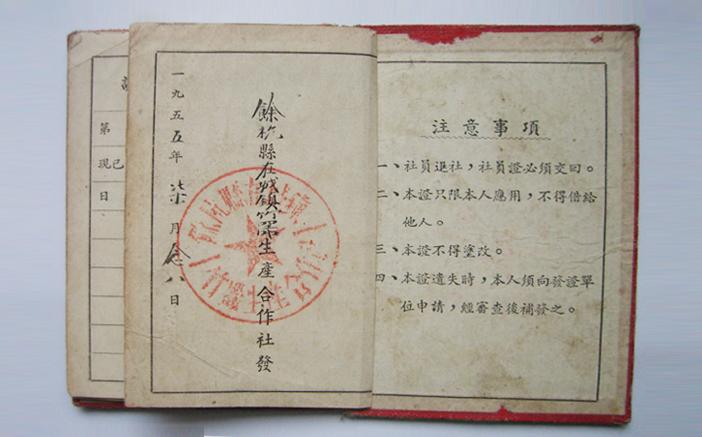 注意事項
一、社員退社，社員證必須交回。
二、本證只限本人應用，不得借給
他人。
三、本證不得塗改。
四、本證遺失時，本人須向發證單
位申請，經審查後補發之。
餘杭縣在城鎮竹器生產合作社發
一九五五年柒月念八日
第
現已
日